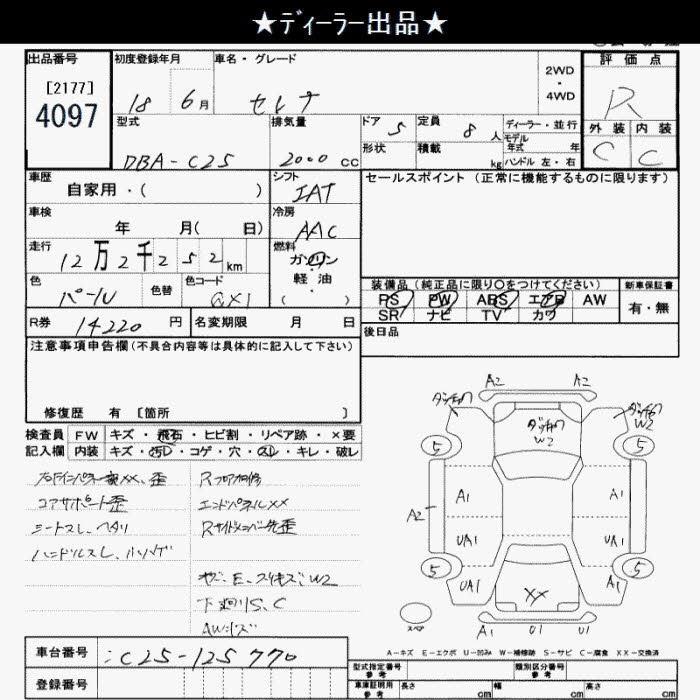 ★ディーラー出品★
出品番号 初度登録年月 車名・グレード 2WD ・ 4WD 評価点
[2177]
4097 18 6月 セレナ R
型式 排気量 ドア 5 定員 8人 ディーラー・並行 外装 内装
DBA-C25 2000 cc 形状 積載 kg モデル年式 年 ハンドル 左・右 C C
車歴 シフト セールスポイント (正常に機能するものに限ります)
自家用・( ) IAT
車検 冷房
年 月( 日) AAC
走行 燃料
12万2千252km ガソリン
色 色替 色コード 軽油
パール QX1 ( ・ )
装備品 (純正品に限り○をつけてください) 新車保証書
PS PW ABS エアB AW 有・無
SR ナビ TV カワ
R券 14220 円 名変期限 月 日
後日品
注意事項申告欄 (不具合内容等は具体的に記入して下さい)
修復歴 有 [箇所 ]
検査員 FW キズ・飛石・ヒビ割・リペア跡・×要
記入欄 内装 キズ・汚れ・コゲ・穴・スレ・キレ・破レ
コアサポート歪 エンドパネルXX
シートスレ、ヘタリ Rサイドメンバー先歪
ハンドルスレ
下廻りS、C
A2 A2
W2
W2
5 5
A1 A1
A2
UA1 UA1
5 5
UA1 A1
XX
スペア
A1 U1 U1
A-キズ E-エクボ U-凹み W-補修跡 S-サビ C-腐食 XX-交換済
車台番号 :C25-125770
型式指定番号 参考 類別区分番号 参考
登録番号 車庫証明用 参考 長さ cm 幅 cm 高さ cm